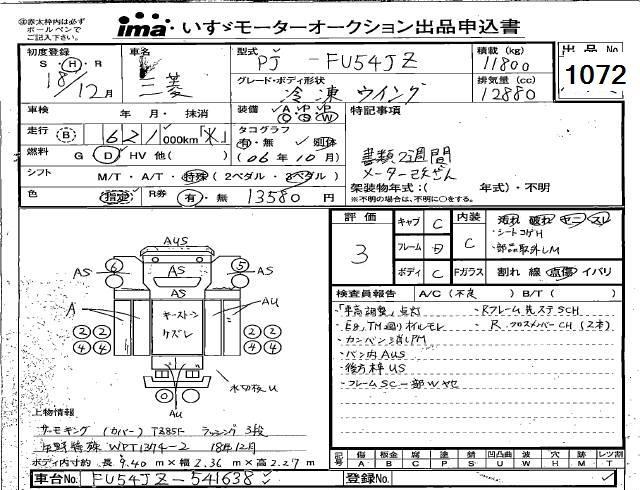 ㊟赤太枠内は必ず
ボールペンで
ご記入下さい。
ima いすゞモーターオークション出品申込書
初度登録 S・H・R
18/12月
車名 三菱
型式 PJ - FU54JZ
積載 (kg) 11800
出品No 1072
グレード・ボディ形状 冷凍 ウイング
排気量 (cc) 12880
車検 年 月・抹消
装備 A/C P/S P/W
特記事項
走行 B 621,000km
タコグラフ 有・無 別体
書類2週間
燃料 G D HV 他( )
(06年10月)
シフト M/T・A/T・特殊(2ペダル・3ペダル)
架装物年式:( 年式)・不明
※不明の場合は、不明に○をする。
色 指定 R券 有・無 13580円
評価 3
キャブ C
フレーム D
ボディ C
内装 C
汚れ 破れ ヤニ スレ
・シートコゲH
・部品取外しM
Fガラス 割れ 線 点傷 イバリ
検査員報告 A/C(不良) B/T( )
・「車高調整」点灯
・Eg,TM廻りオイルモレ
・バン内AUS
・後方枠US
・フレームSC一部Wヤセ
・RフレームSCH
・R クロスメンバーCH(2本)
AUS
6 AS AS 5 AS
AS
A キーストーン ケズレ AU
2 2 2 2
4 4 4 4
AU
水切改U
上物情報
サーモキング (カバー) ラッシング3段
矢野特殊 WPT1374-2 18年12月
ボディ内寸約 長 9.40m×幅 2.36m×高 2.27m
記号 傷 A 板金 B 腐 C 塗 P 錆 S 凹凸曲 U 波 W 穴 H 跡 M レツ割 T
車台No. FU54JZ-541638
登録No.